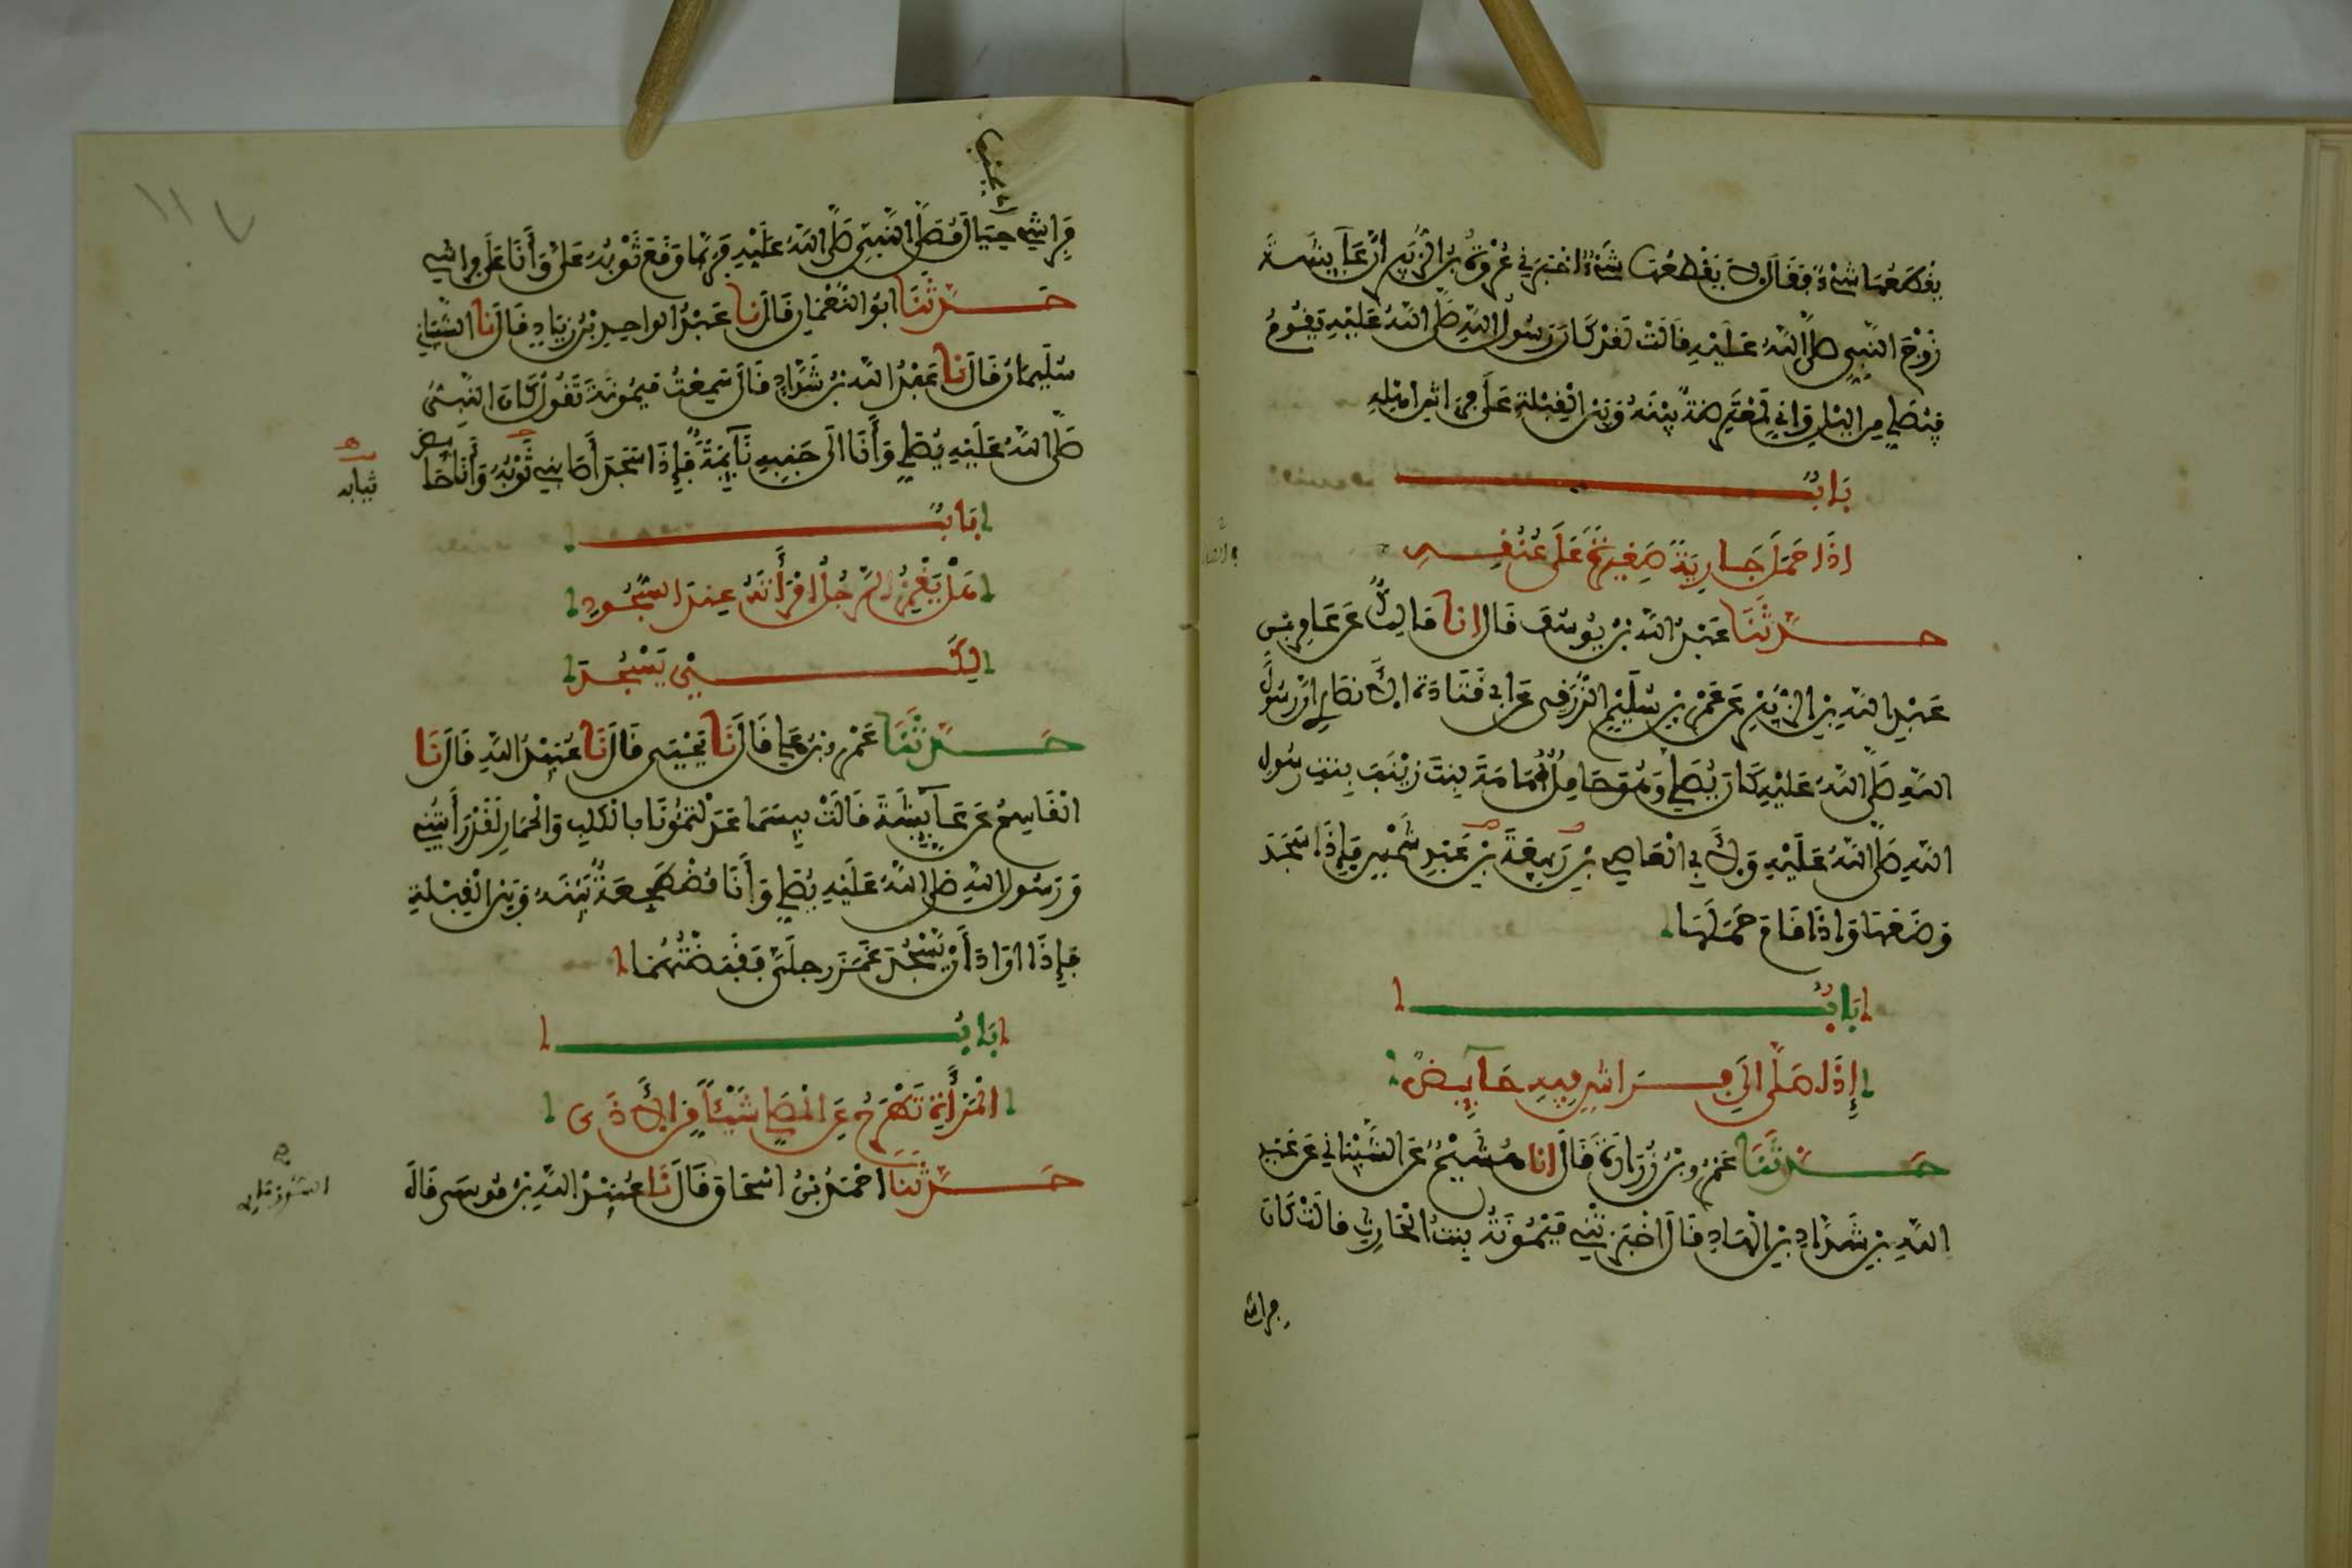 يقطعها شيء فقال لا يقطعها شيء اخبرني عروة بن الزبير ان عايشة
زوج النبي صلى الله عليه قالت لقد كان رسول الله صلى الله عليه يقوم
فيصلي من الليل واني لمعترضة بينه وبين القبلة على فراش اهله
باب
اذا حمل جارية صغيرة على عنقه
حدثنا عبد الله بن يوسف قال انا مالك عن عامر بن
عبد الله بن الزبير عن عمرو بن سليم الزرقي عن ابي قتادة الانصاري ان رسول
الله صلى الله عليه كان يصلي وهو حامل امامة بنت زينب بنت رسول
الله صلى الله عليه ولابي العاصي بن ربيعة بن عبد شمس فاذا سجد
وضعها واذا قام حملها
باب
إذا صلى الى فراش فيه حايض
حدثنا عمرو بن زرارة قال انا هشيم عن الشيباني عن عبد
الله بن شداد بن الهاد قال اخبرتني ميمونة بنت الحارث قالت كان
فراشي
١١٧
فراشي حيال مصلى النبي صلى الله عليه فربما وقع ثوبه علي وأنا على فراشي
حدثنا ابو النعمان قال نا عبد الواحد بن زياد قال نا الشيباني
سليمان قال نا عبد الله بن شداد قال سمعت ميمونة تقول كان النبي
صلى الله عليه يصلي وأنا الى جنبه نآيمة فإذا سجد أصابني ثوبه وأنا حايض
ثيابه
باب
هل يغمز الرجل امرأته عند السجود
لكي يسجد
حدثنا عمرو بن علي قال نا يحيى قال نا عبيد الله قال نا
القاسم عن عايشة قالت بيسما عدلتمونا بالكلب والحمار لقد رأيتني
ورسول الله صلى الله عليه يصلي وأنا مضطجعة بينه وبين القبلة
فإذا اراد أن يسجد غمز رجلي فقبضتهما
باب
المرأة تطرح عن المصلي شيئا من الاذى
حدثنا احمد بن اسحاق قال نا عبيد الله بن موسى قال